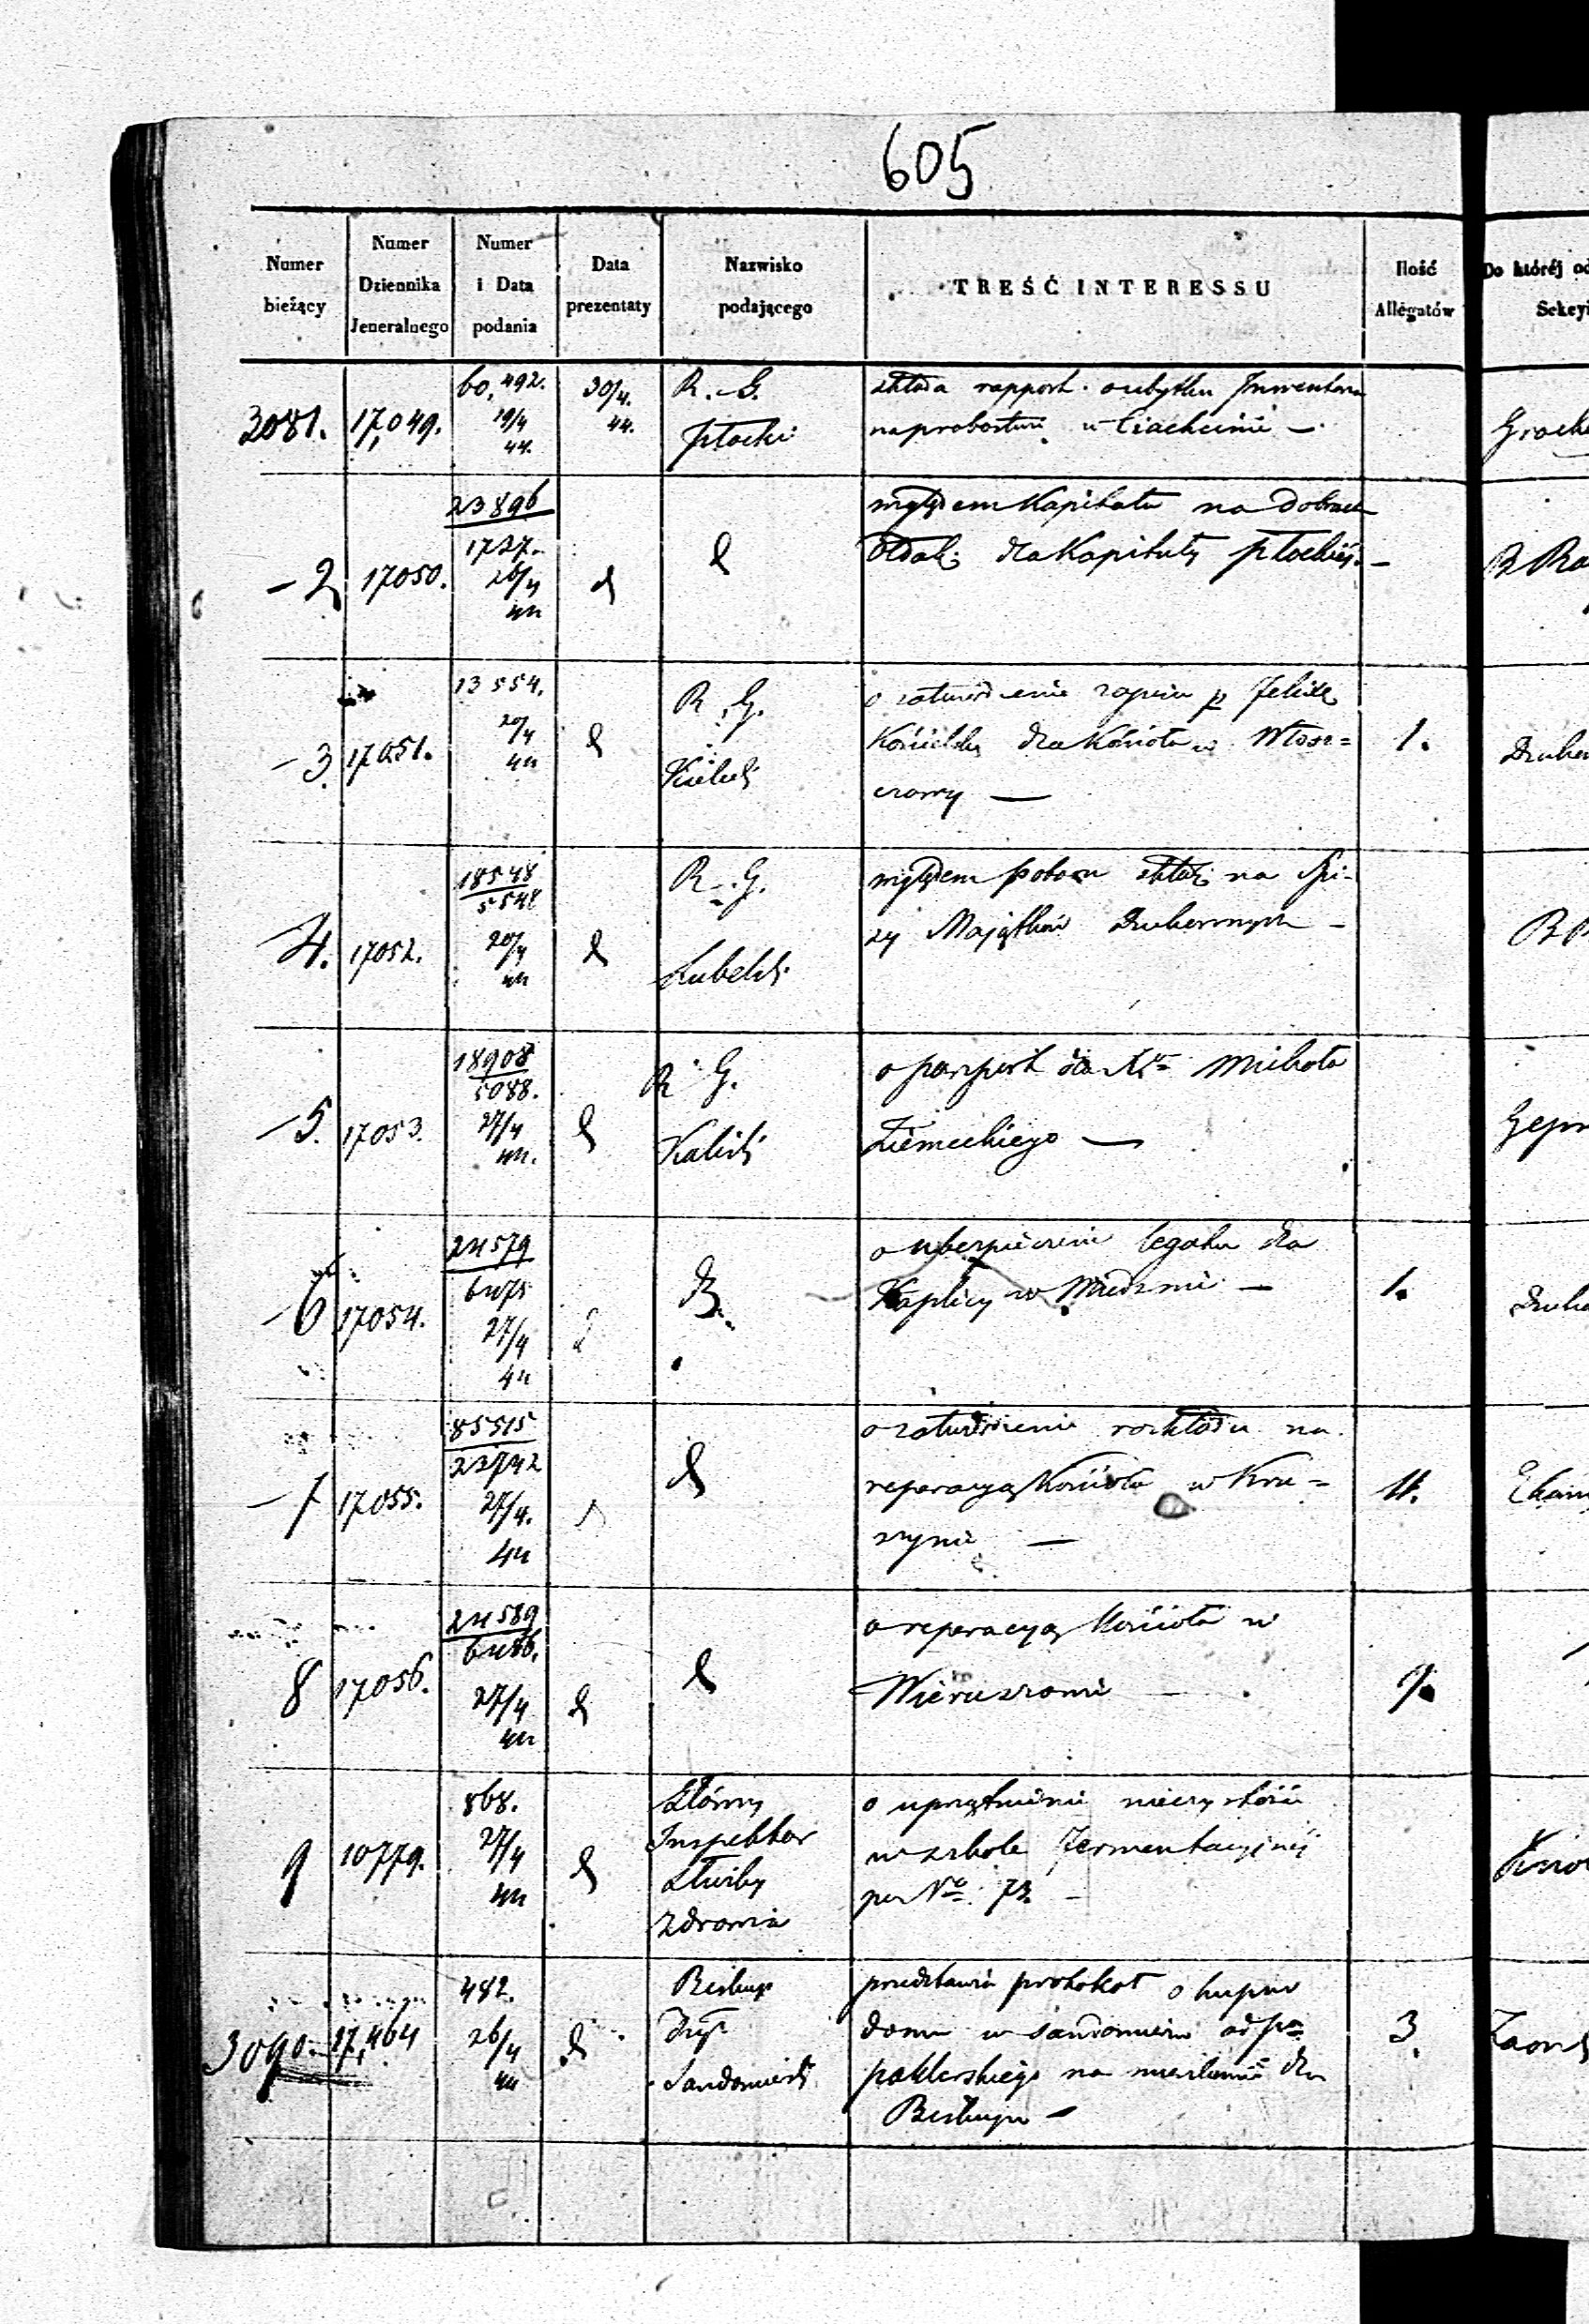 605
Numer bieżący
Numer Dziennika Jeneralnego
Numer i Data podania
Data prezentaty
Nazwisko podającego
TREŚĆ INTERESSU
Ilość Allegatów
Do któréj od
Sekcyi
3081. 17,049. 60,492. 19/4 44. 30/4. 44. R. G. Płocki
składa rapport o ubytku Inwentarza
na probostwie w Ciachcinie —
Groch
— 2 17050. 23896 1727. 26/4 44
względem Kapitału na dobrach
dla Kapituły Płockiéj. —
B Ra
— 3. 17051. 13554. 20/4 44 R. G. Kielecki
o zatwierdzenie zapisu p Felixę
dla Kościoła w Włosz=
czowy —
1.
Dzube
4. 17052. 18548 5548 20/4 44 R. G. Lubelski
względem poboru składki na
Majątków —
— 5. 17053. 18908 5088. 27/4 44. R G. Kaliski
o paszport dla Xa Michała
Ziemeckiego —
— 6 17054. 24579 6475 27/4 44
o ubezpieczenie legatu dla
Kaplicy w —
1.
— 7 17055. 85515 23742 27/4. 44
o zatwierdzenie rozkładu na
reperacyą Kościoła w Kru=
szynie —
4.
8 17056. 24589 6486. 27/4 44
o reperacyą Kościoła w
Wieruszowie —
9 10779. 868. 27/4 44
Główny
Inspektor
Służby
Zdrowia
o uprzątnienie nieczystości
w szkole Fermentacyjnéj
per No 73. —
3090. 17,464 482. 26/4 44
Biskup
Dyz
Sandomierski
przedstawia protokół o kupno
domu w Sandomierzu od Pa
na mieszkanie dla
Biskupa —
3.